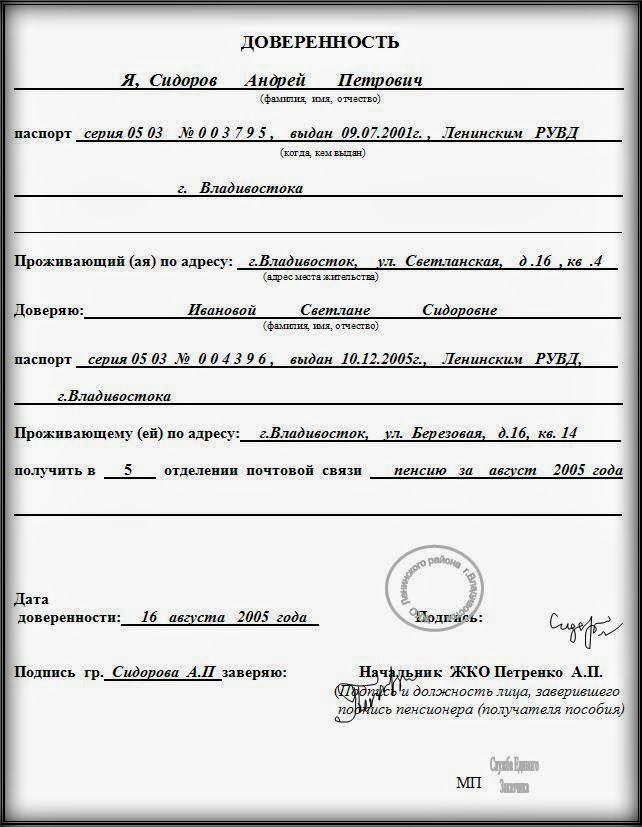 ДОВЕРЕННОСТЬ
Я, Сидоров Андрей Петрович
(фамилия, имя, отчество)
паспорт серия 05 03 № 0 0 3 7 9 5 , выдан 09.07.2001г. , Ленинским РУВД
(когда, кем выдан)
г. Владивостока
Проживающий (ая) по адресу: г.Владивосток, ул. Светланская, д .16 , кв .4
(адрес места жительства)
Доверяю: Ивановой Светлане Сидоровне
(фамилия, имя, отчество)
паспорт серия 05 03 № 0 0 4 3 9 6 , выдан 10.12.2005г., Ленинским РУВД,
г.Владивостока
Проживающему (ей) по адресу: г.Владивосток, ул. Березовая, д.16, кв. 14
получить в 5 отделении почтовой связи пенсию за август 2005 года
Ленинского района г.Владивостока
Дата
доверенности: 16 августа 2005 года Подпись:
Подпись гр. Сидорова А.П заверяю: Начальник ЖКО Петренко А.П.
(Подпись и должность лица, заверившего
подпись пенсионера (получателя пособия)
Служба Единого
Заказчика
МП